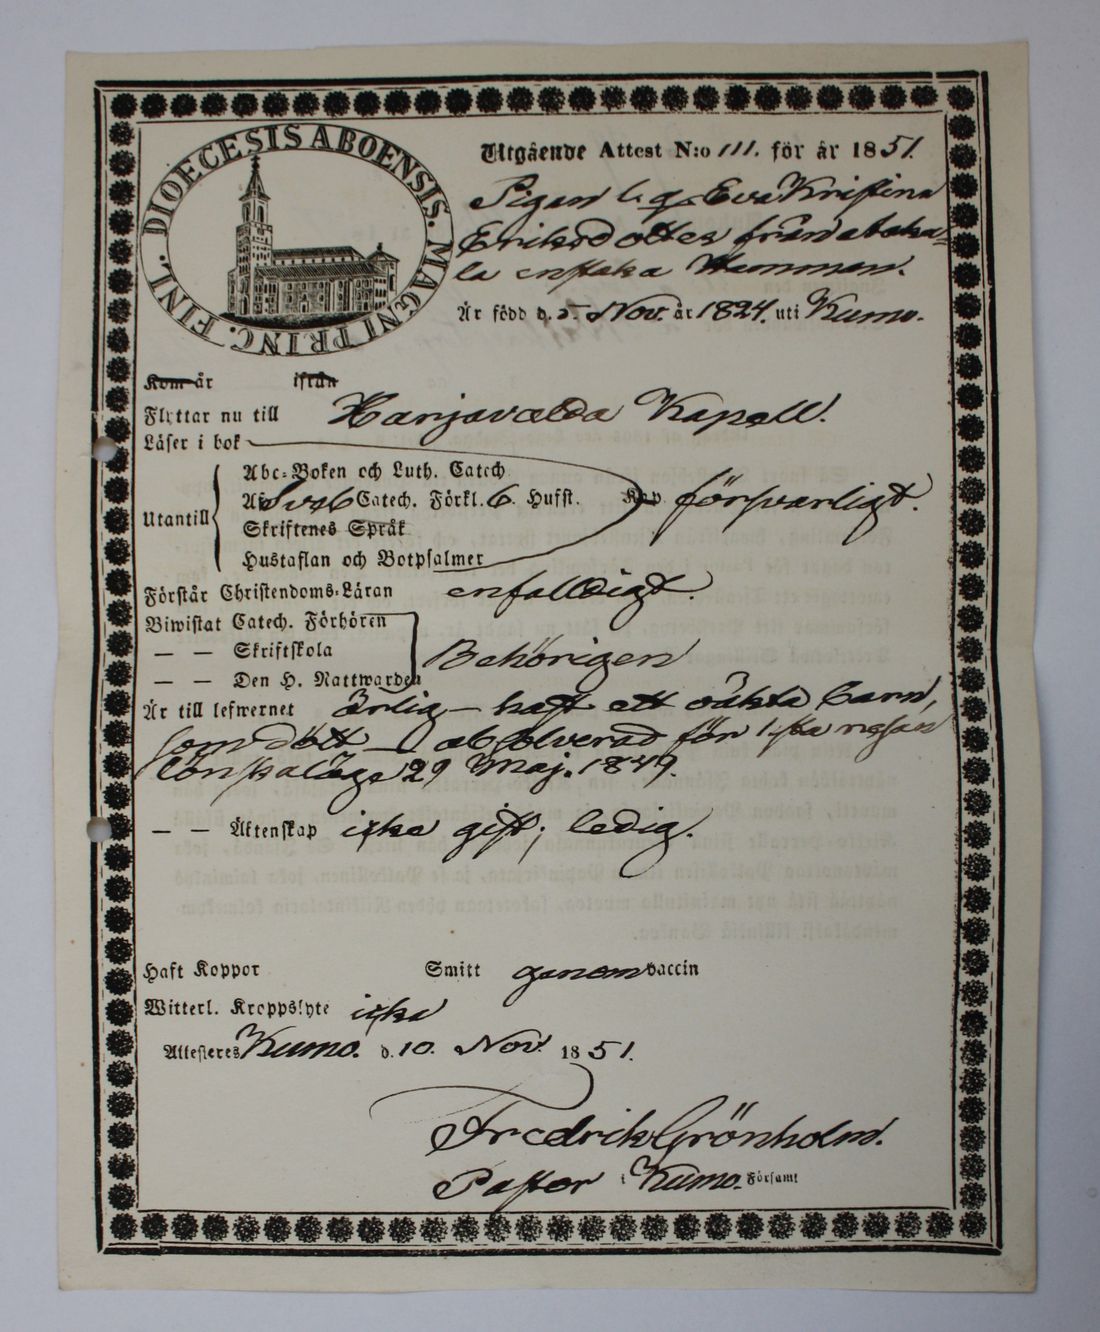 DIOECESIS ABOENSIS. MAGNI PRINC. FINL.
Utgående Attest N:o 111. för år 1851.
Pigan Eva Kristina
Eriksdotter från
enstaka Hemman.
Är född d. 5. Nov. år 1824. uti Kumo.
Kom år ifrån
Flyttar nu till Harjavalda Kapell.
Läser i bok
Utantill
Abc-Boken och Luth. Catech
Af Sveb Catech. Förkl. 6. Hufst. Kap. försvarligt.
Skriftenes Språk
Hustaflan och Botpsalmer
Förstår Christendoms-Läran enfaldigt.
Biwistat Catech. Förhören
— — Skriftskola Behörigen
— — Den H. Nattwarden
Är till lefwernet ärlig – haft ett oäkta barn,
som dött – absolverad för 1:sta resan
lönskaläge 29 Maj. 1849
— — Äktenskap icke gift; ledig.
Haft Koppor Smitt genom vaccin
Witterl. Kroppslyte icke
Attesteres Kumo. d. 10. Nov. 1851.
Fredrik Grönholm.
Pastor i Kumo. Församl